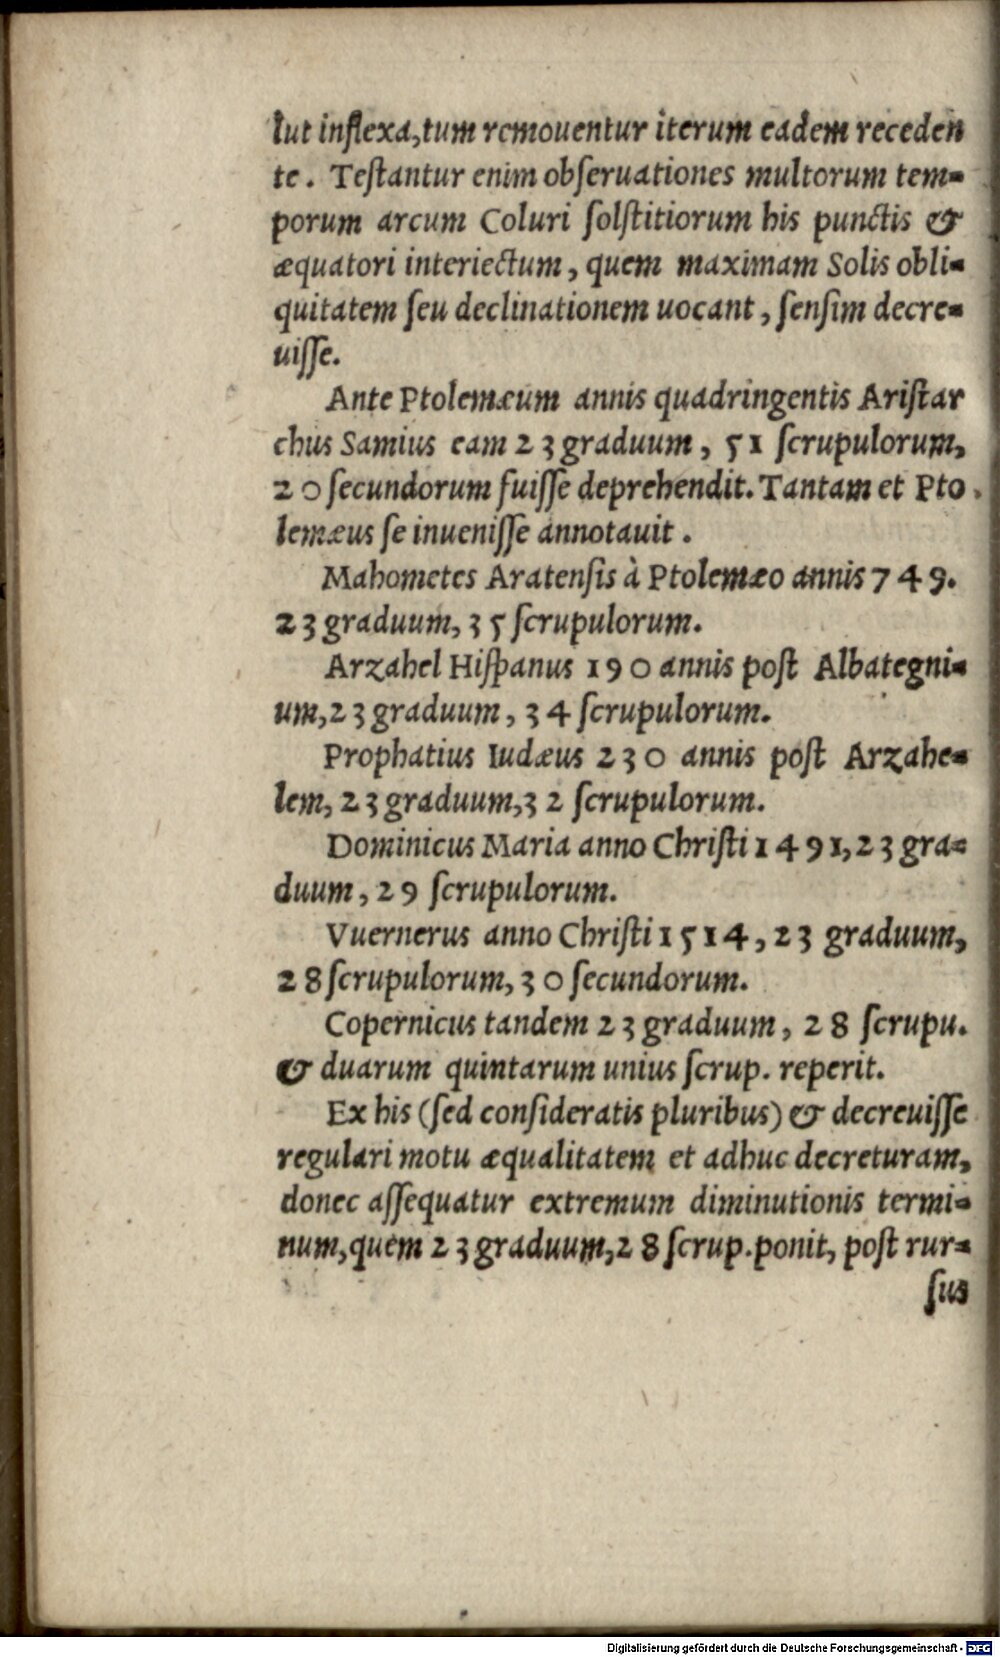 lut inflexa, tum remouentur iterum eadem receden
te. Teſtantur enim obſeruationes multorum tem-
porum arcum Coluri ſolſtitiorum his punctis &
æquatori interiectum, quem maximam Solis obli-
quitatem ſeu declinationem uocant, ſenſim decre-
uiſſe.
Ante Ptolemæum annis quadringentis Ariſtar
chus Samius eam 23 graduum, 51 ſcrupulorum,
20 ſecundorum fuiſſe deprehendit. Tantam et Pto.
lemæus ſe inueniſſe annotauit.
Mahometes Aratenſis à Ptolemæo annis 749.
23 graduum, 35 ſcrupulorum.
Arzahel Hiſpanus 190 annis poſt Albategni-
um, 23 graduum, 34 ſcrupulorum.
Prophatius Iudæus 230 annis poſt Arzahe-
lem, 23 graduum, 32 ſcrupulorum.
Dominicus Maria anno Chriſti 1491, 23 gra-
duum, 29 ſcrupulorum.
Vuernerus anno Chriſti 1514, 23 graduum,
28 ſcrupulorum, 30 ſecundorum.
Copernicus tandem 23 graduum, 28 ſcrupu.
& duarum quintarum unius ſcrup. reperit.
Ex his (ſed conſideratis pluribus) & decreuiſſe
regulari motu æqualitatem et adhuc decreturam,
donec aſſequatur extremum diminutionis termi-
num, quem 23 graduum, 28 ſcrup. ponit, poſt rur-
ſus
Digitalisierung gefördert durch die Deutsche Forschungsgemeinschaft - DFG